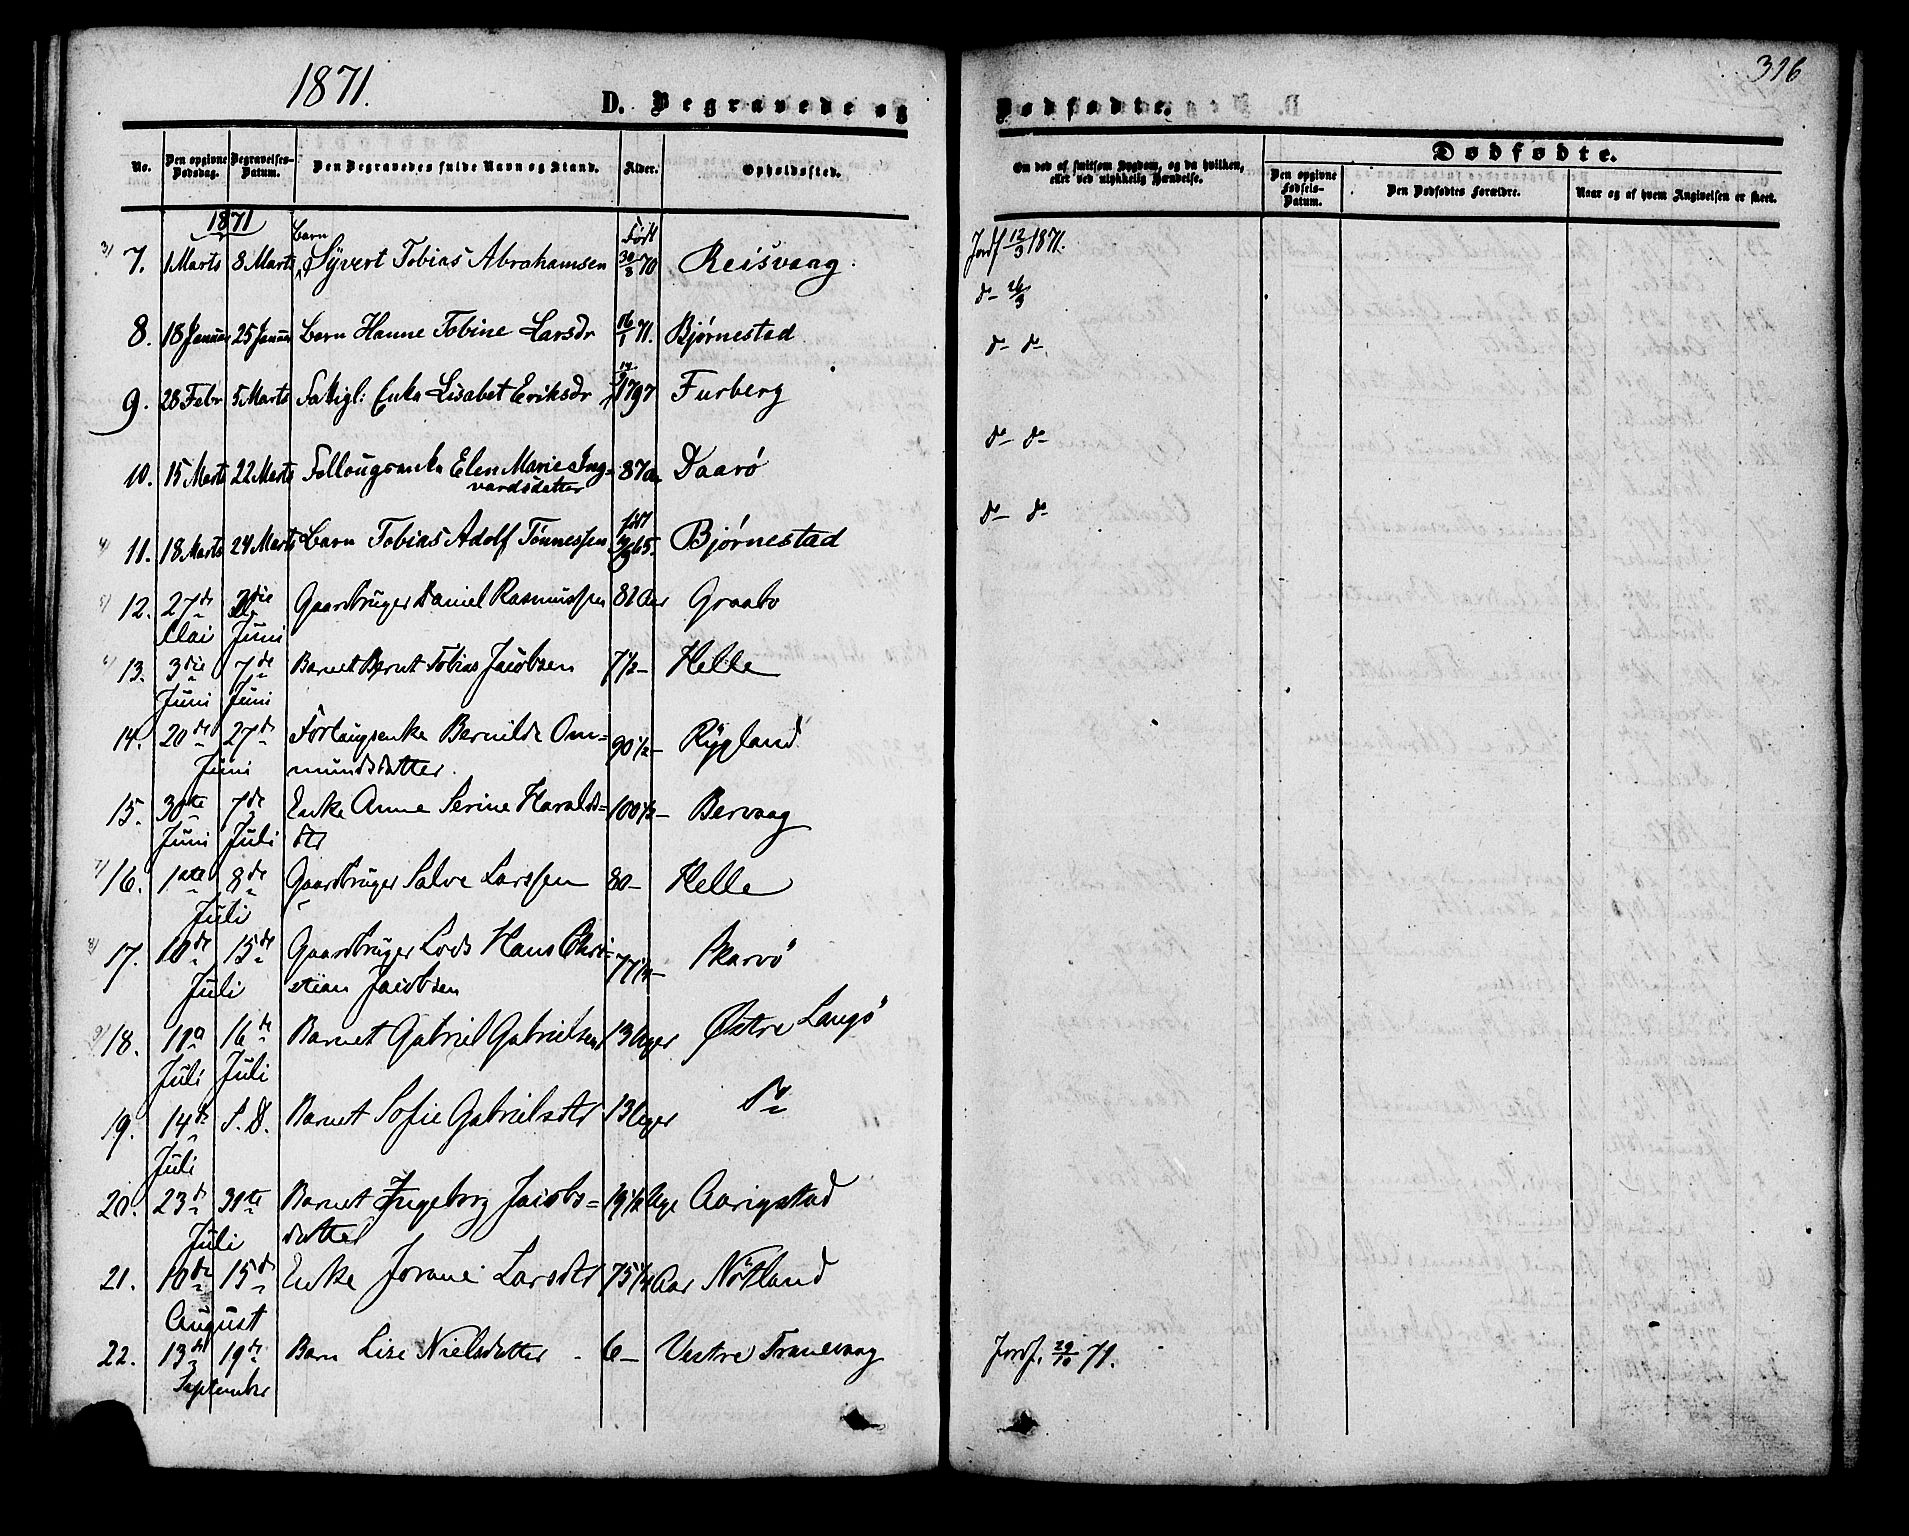 316
1871.
D. Begravede og Dødfødte.
No. Den opgivne Dødsdag. Begravelses-Datum. Den Begravedes fulde Navn og Stand. Alder. Opholdssted. Om død af smitsom Sygdom, og da hvilken, eller ved ulykkelig Hændelse.
Dødfødte.
Den opgivne Fødsels-Datum. Den Dødfødtes Forældre. Naar og af hvem Angivelsen er skeet.
1871
3) 7. 1 Marts 8 Marts Barn Syvert Tobias Abrahamsen Født 30/8 70 Reisvaag Jordf 12/3 1871.
8. 18 Januar 25 Januar Barn Hanne Tobine Larsdr 16/1 71. Bjørnestad d- 26/3
9. 28 Febr 5 Marts Fattigl: Enke Lisabet Eriksdr 1797 Furberg d- d-
10. 15 Marts 22 Marts Føllougsenke Elen Marie Ing-
vardsdatter 87 Aar Daarö d- d-
4) 11. 18 Marts 24 Marts Barn Tobias Adolf Tønnessen født 65. Bjørnestad d- d-
5) 12. 27de Mai Juni Gaardbruger Daniel Rasmussen 82 Aar Graabo
6) 13. 3die Juni 7de Juni Barnet Bernt Tobias Jacobsen 7 1/2 - Helle
14. 20de 27de Juni Forlaugsenke Bernilde Om-
mundsdatter. 90 1/2 - Rygland
15. 30te Juni 7de Juli Enke Anne Serine Haralds-
dtr 100 1/2 - Bervaag
7) 16. 1ste 8de Juli Gaardbruger Salve Larssen 80 - Helle
8) 17. 10de 15de Juli Gaardbruger Lods Hans Chri-
stian Jacobsen 77 1/2 - Skarvö
9) 18. 10d Juli 16de Juli Barnet Gabriel Gabrielsen 13 Uger Østre Langö
19. 14de Juli S. D. Barnet Sofie Gabrielsdtr 13 Uger Do
20. 23de 31te Juli Barnet Ingeborg Jacobs-
datter 19 1/2 Uge Aarigstad
21. 10de 15de August Enke Jorane Larsdtr 75 1/4 Aar Nötland
22. 13de 19de September Barn Lise Nielsdatter - 6 - Vestre Tranevaag Jordf. 29/10 71.